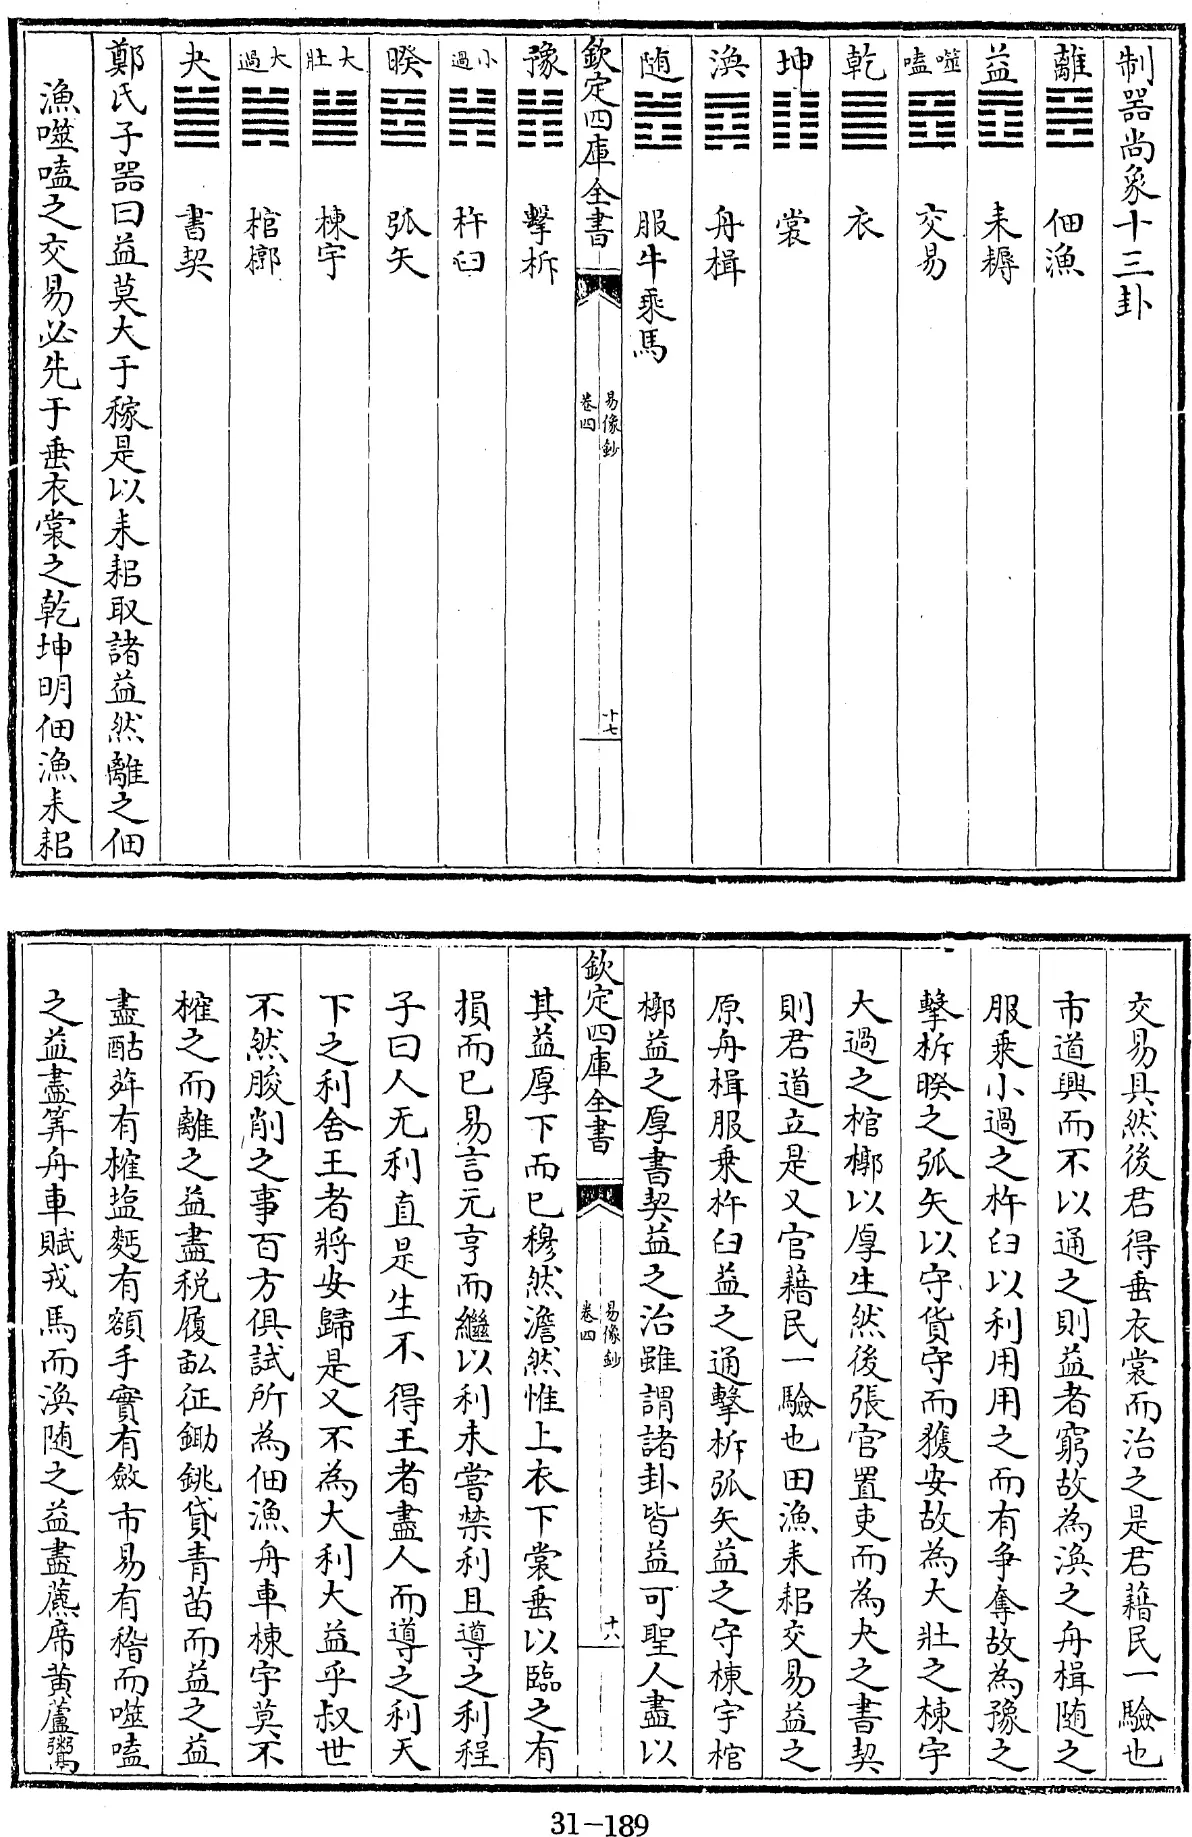 制器尚象十三卦
離 佃漁
益 耒耨
噬嗑 交易
乾 衣
坤 裳
渙 舟楫
随 服牛乘馬
欽定四庫全書 易像鈔 卷四 十七
豫 擊柝
小過 杵臼
睽 弧矢
大壯 棟宇
大過 棺槨
夬 書契
鄭氏子器曰益莫大于稼是以耒耜取諸益然離之佃
漁噬嗑之交易必先于垂衣裳之乾坤明佃漁耒耜
交易具然後君得垂衣裳而治之是君藉民一驗也
市道興而不以通之則益者窮故為渙之舟楫随之
服乘小過之杵臼以利用用之而有争奪故為豫之
擊柝睽之弧矢以守貨守而獲安故為大壯之棟宇
大過之棺槨以厚生然後張官置吏而為夬之書契
則君道立是又官藉民一驗也田漁耒耜交易益之
原舟楫服乗杵臼益之通擊柝弧矢益之守棟宇棺
槨益之厚書契益之治雖謂諸卦皆益可聖人盡以
欽定四庫全書 易像鈔 卷四 十八
其益厚下而已穆然澹然惟上衣下裳垂以臨之有
損而已易言元亨而繼以利未嘗禁利且導之利程
子曰人无利直是生不得王者盡人而導之利天
下之利舍王者將安歸是又不為大利大益乎叔世
不然朘削之事百方俱試所為佃漁舟車棟宇莫不
榷之而離之益盡税履畝征鋤銚貸青苗而益之益
盡酤筭有榷塩麪有額手實有斂市易有稽而噬嗑
之益盡筭舟車賦戎馬而渙随之益盡蔗席黄蘆鬻
31-189